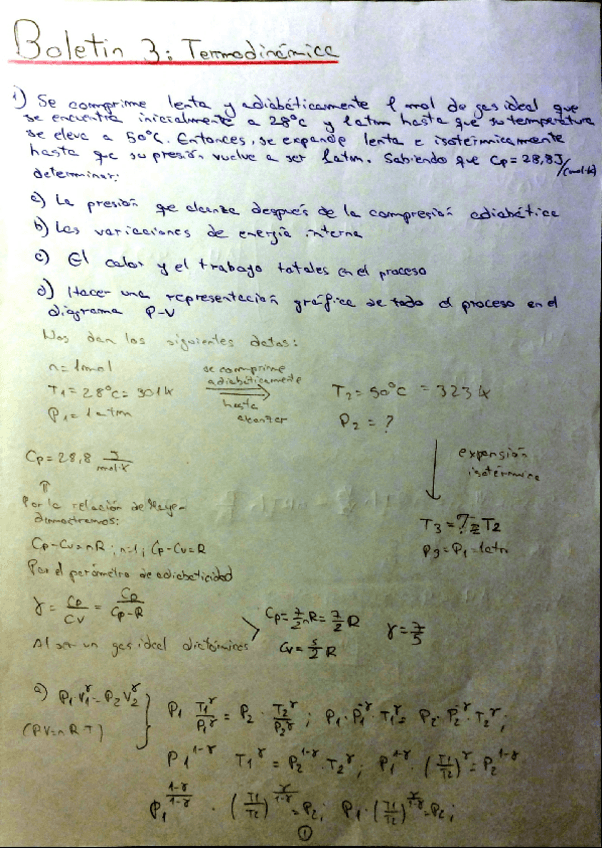 Boletín 3: Termodinámica
1) Se comprime lenta y adiabáticamente 1 mol de gas ideal que
se encuentra inicialmente a 28°C y 1 atm hasta que su temperatura
se eleva a 50°C. Entonces, se expande lenta e isotérmicamente
hasta que su presión vuelve a ser 1 atm. Sabiendo que Cp = 28,8 J/(mol·k)
determinar:
a) La presión que alcanza después de la compresión adiabática
b) Las variaciones de energía interna
c) El calor y el trabajo totales en el proceso
d) Hacer una representación gráfica de todo el proceso en el
diagrama P-V
Nos dan los siguientes datos:
n = 1 mol
T1 = 28°C = 301 k
P1 = 1 atm
se comprime
adiabáticamente
hasta
alcanzar
T2 = 50°C = 323 k
P2 = ?
Cp = 28,8 J/mol·K
expansión
isotérmica
T3 = ? = T2
P3 = P1 = 1 atm
Por la relación de Mayer
Cp - Cv = nR; n=1; Cp - Cv = R
Por el parámetro de adiabaticidad
γ = Cp/Cv = Cp/(Cp-R)
Al ser un gas ideal
Cp = 7/2 nR = 7/2 R
Cv = 5/2 R
γ = 7/5
a) P1 V1^γ = P2 V2^γ
(PV = nRT)
P1 T1^γ/P1^γ = P2 · T2^γ/P2^γ ; P1 · P1^-γ · T1^γ = P2 · P2^-γ · T2^γ ;
P1^1-γ T1^γ = P2^1-γ · T2^γ ; P1^1-γ · (T1/T2)^γ = P2^1-γ
P1^(1-γ/1-γ) · (T1/T2)^(γ/1-γ) = P2 ; P1 · (T1/T2)^(γ/1-γ) = P2 ;
1